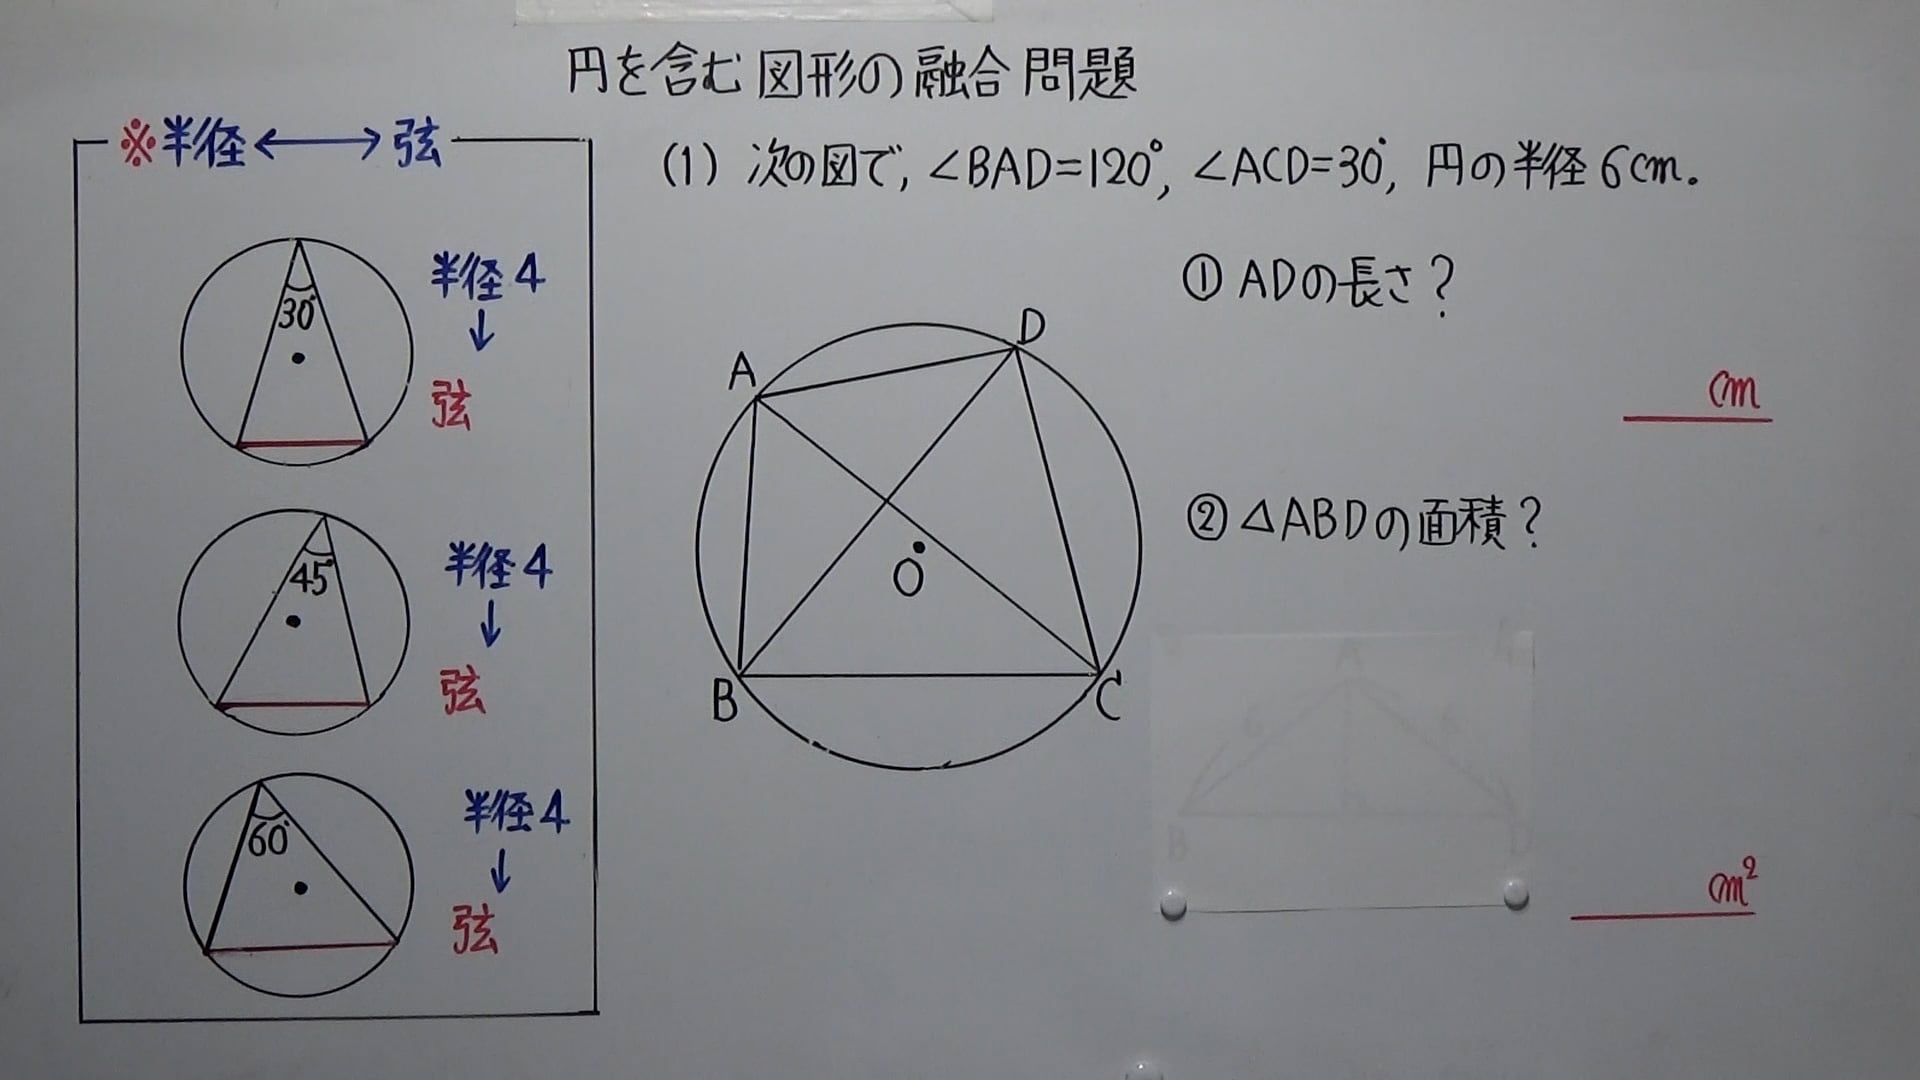 円を含む図形の融合問題
※半径⟷弦
30°
半径4
↓
弦
45°
半径4
↓
弦
60°
半径4
↓
弦
(1) 次の図で, ∠BAD=120°, ∠ACD=30°, 円の半径6cm.
① ADの長さ?
cm
A
D
O
B
C
② △ABDの面積?
cm²
A
6
6
B
D